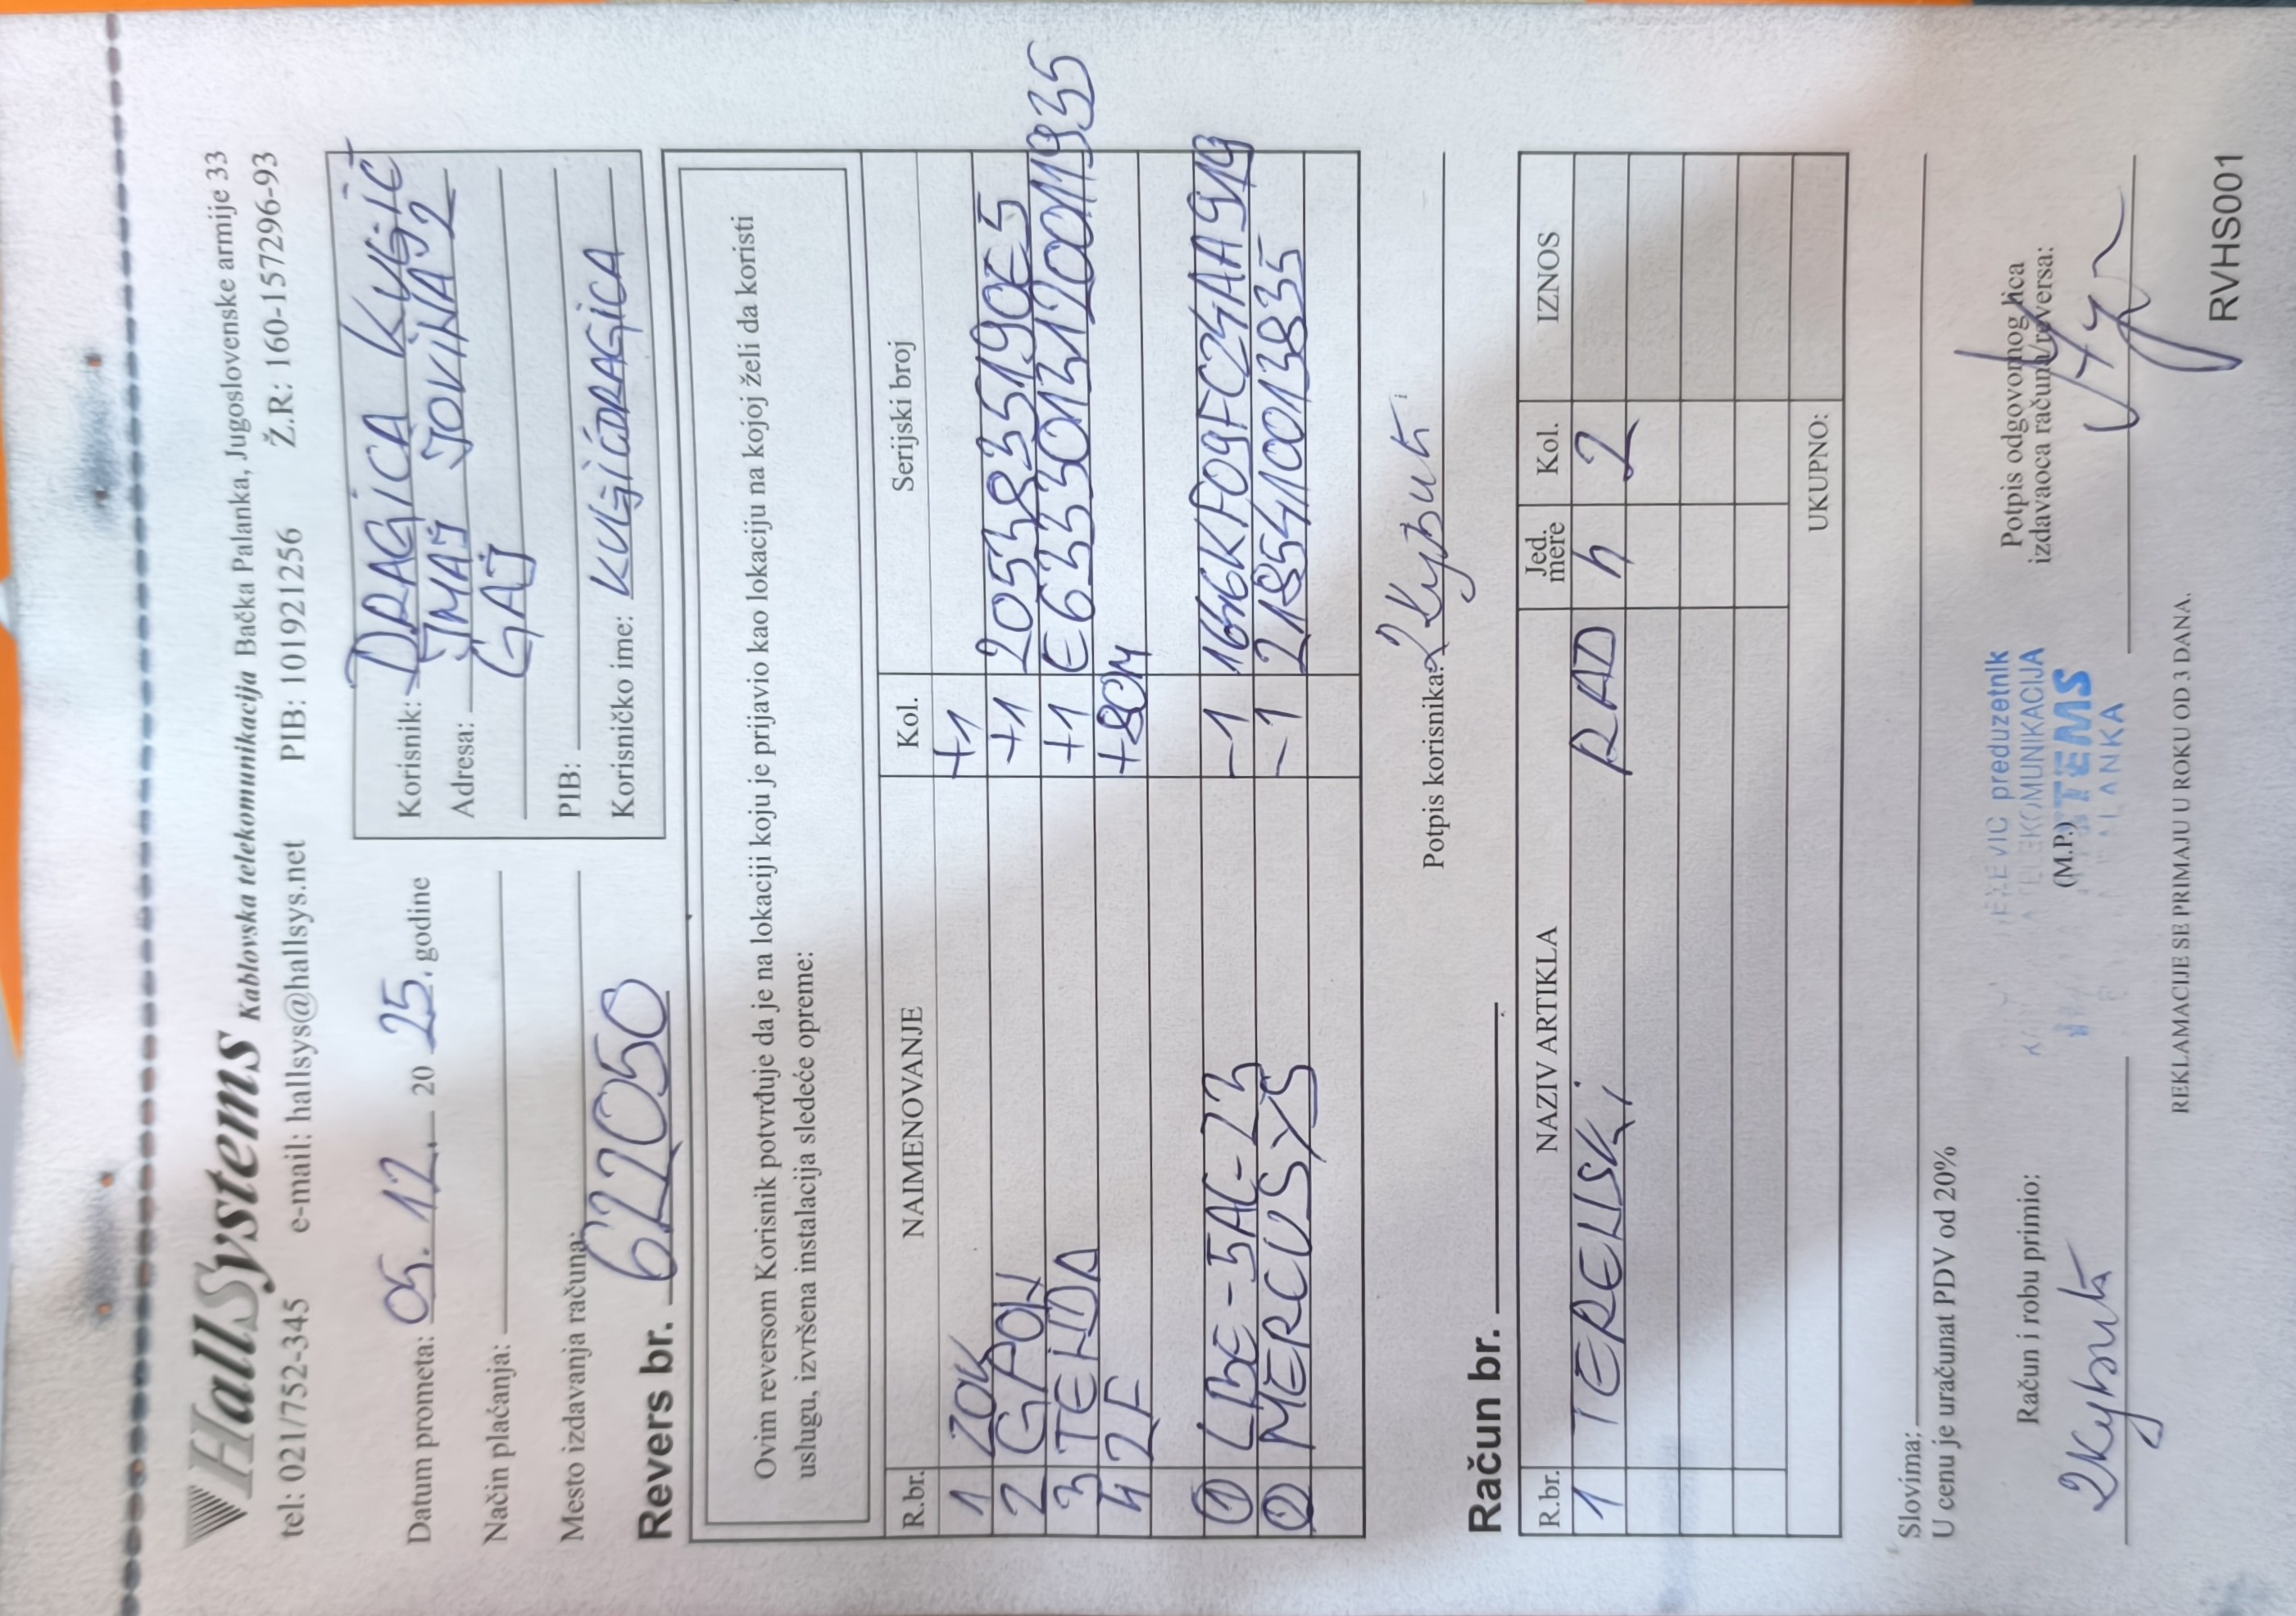 HallSystems Kablovska telekomunikacija Bačka Palanka, Jugoslovenske armije 33
tel: 021/752-345 e-mail: hallsys@hallsys.net PIB: 101921256 Ž.R: 160-157296-93
Datum prometa: 05. 12. 20 25. godine
Način plaćanja:
Mesto izdavanja računa:
Revers br. 622050
Korisnik: DRAGICA KULJIĆ
Adresa: ZMAJ JOVINA 92
GAJ
PIB:
Korisničko ime: KULJIĆDRAGICA
Ovim reversom Korisnik potvrđuje da je na lokaciji koju je prijavio kao lokaciju na kojoj želi da koristi
uslugu, izvršena instalacija sledeće opreme:
R.br. NAIMENOVANJE Kol. Serijski broj
1 ZOK +1
2 GPON +1 2053835190E5
3 TENDA +1 E6333013120011935
4 2F +80M
1 LBE-5AC-23 -1 1666KF09FC24AA919
2 MERCUSYS -1 2185410013835
Potpis korisnika:
Račun br.
R.br. NAZIV ARTIKLA Jed. mere Kol. IZNOS
1 TERENSKI RAD h 2
UKUPNO:
Slovima:
U cenu je uračunat PDV od 20%
Račun i robu primio:
preduzetnik
TELEKOMUNIKACIJA
(M.P.)
Potpis odgovornog lica
izdavaoca računa/reversa:
REKLAMACIJE SE PRIMAJU U ROKU OD 3 DANA.
RVHS001